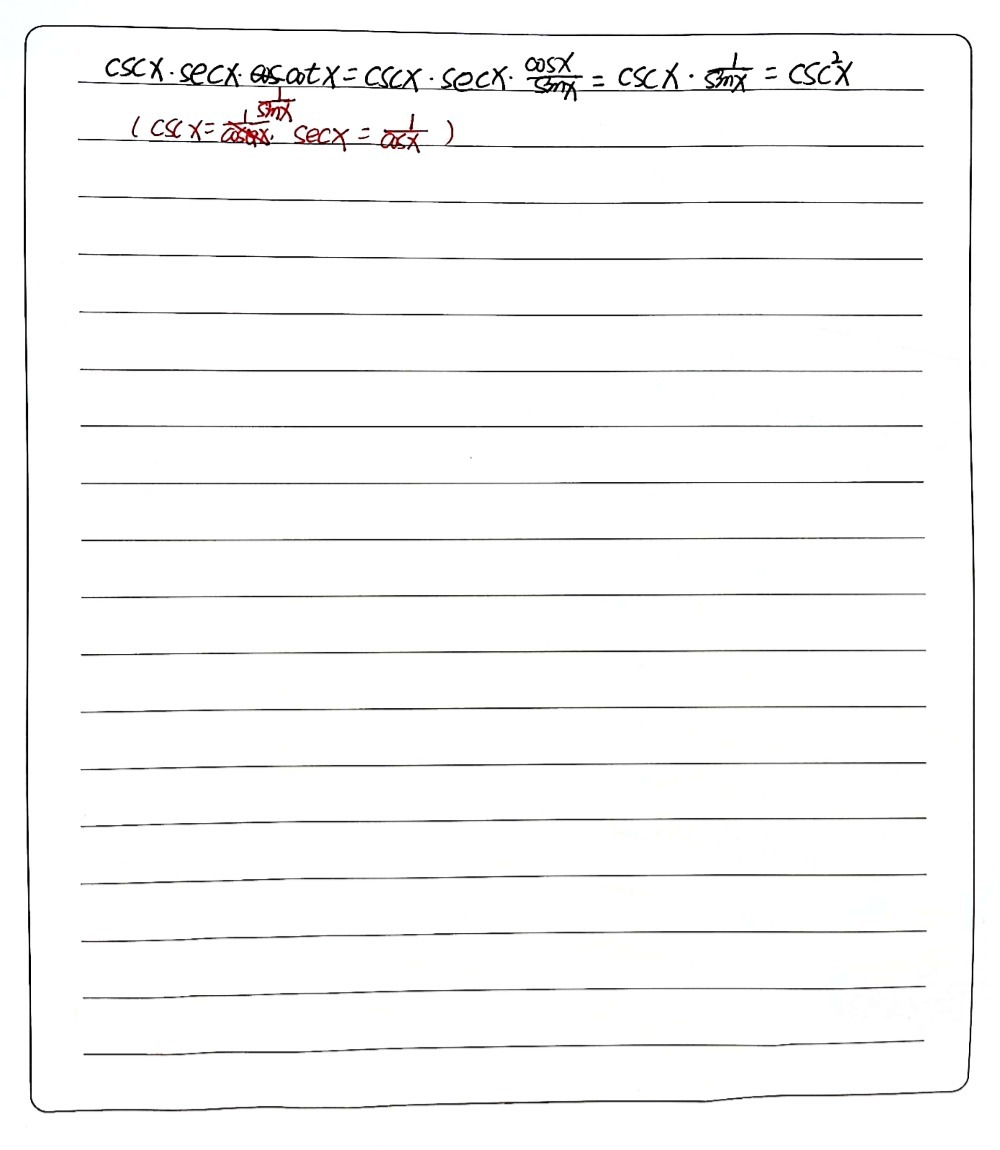 cscx·secx·cotx=cscx·secx·cosx/sinx=cscx·1/sinx=csc²x
(cscx=1/sinx, secx=1/cosx)